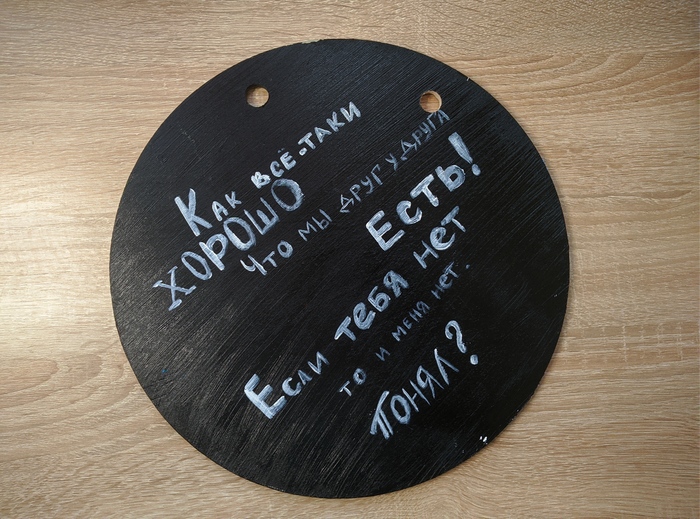 Как всё-таки
хорошо
Что мы друг у друга
Есть!
Если тебя нет
то и меня нет.
Понял?